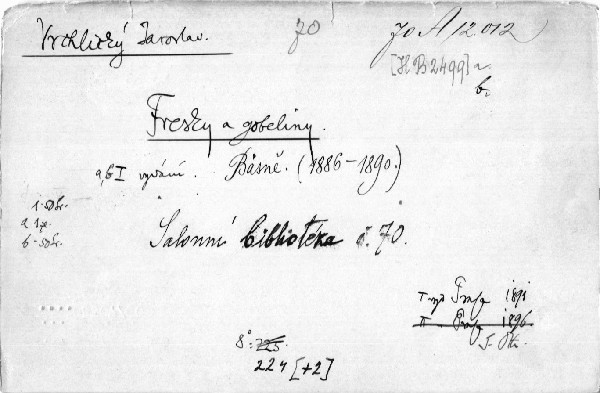 Vrchlický Jaroslav.
70
70 A 12.012
[H B 2499] a.
b.
Fresky a gobeliny.
a,b I vydání. Básně. (1886-1890.)
a 1
Salonní bibliotéka č. 70.
I vyd Praha 1891
II Praha 1896
J. Otto
8°
224 [+2]